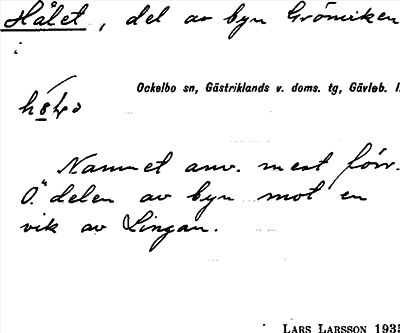 Hålet, del av byn Grönviken
i
Ockelbo sn, Gästriklands v. doms. tg, Gävleb. l.
Namnet anv. mest förr.
Ö. delen av byn mot en
vik av Lingan.
LARS LARSSON 1935